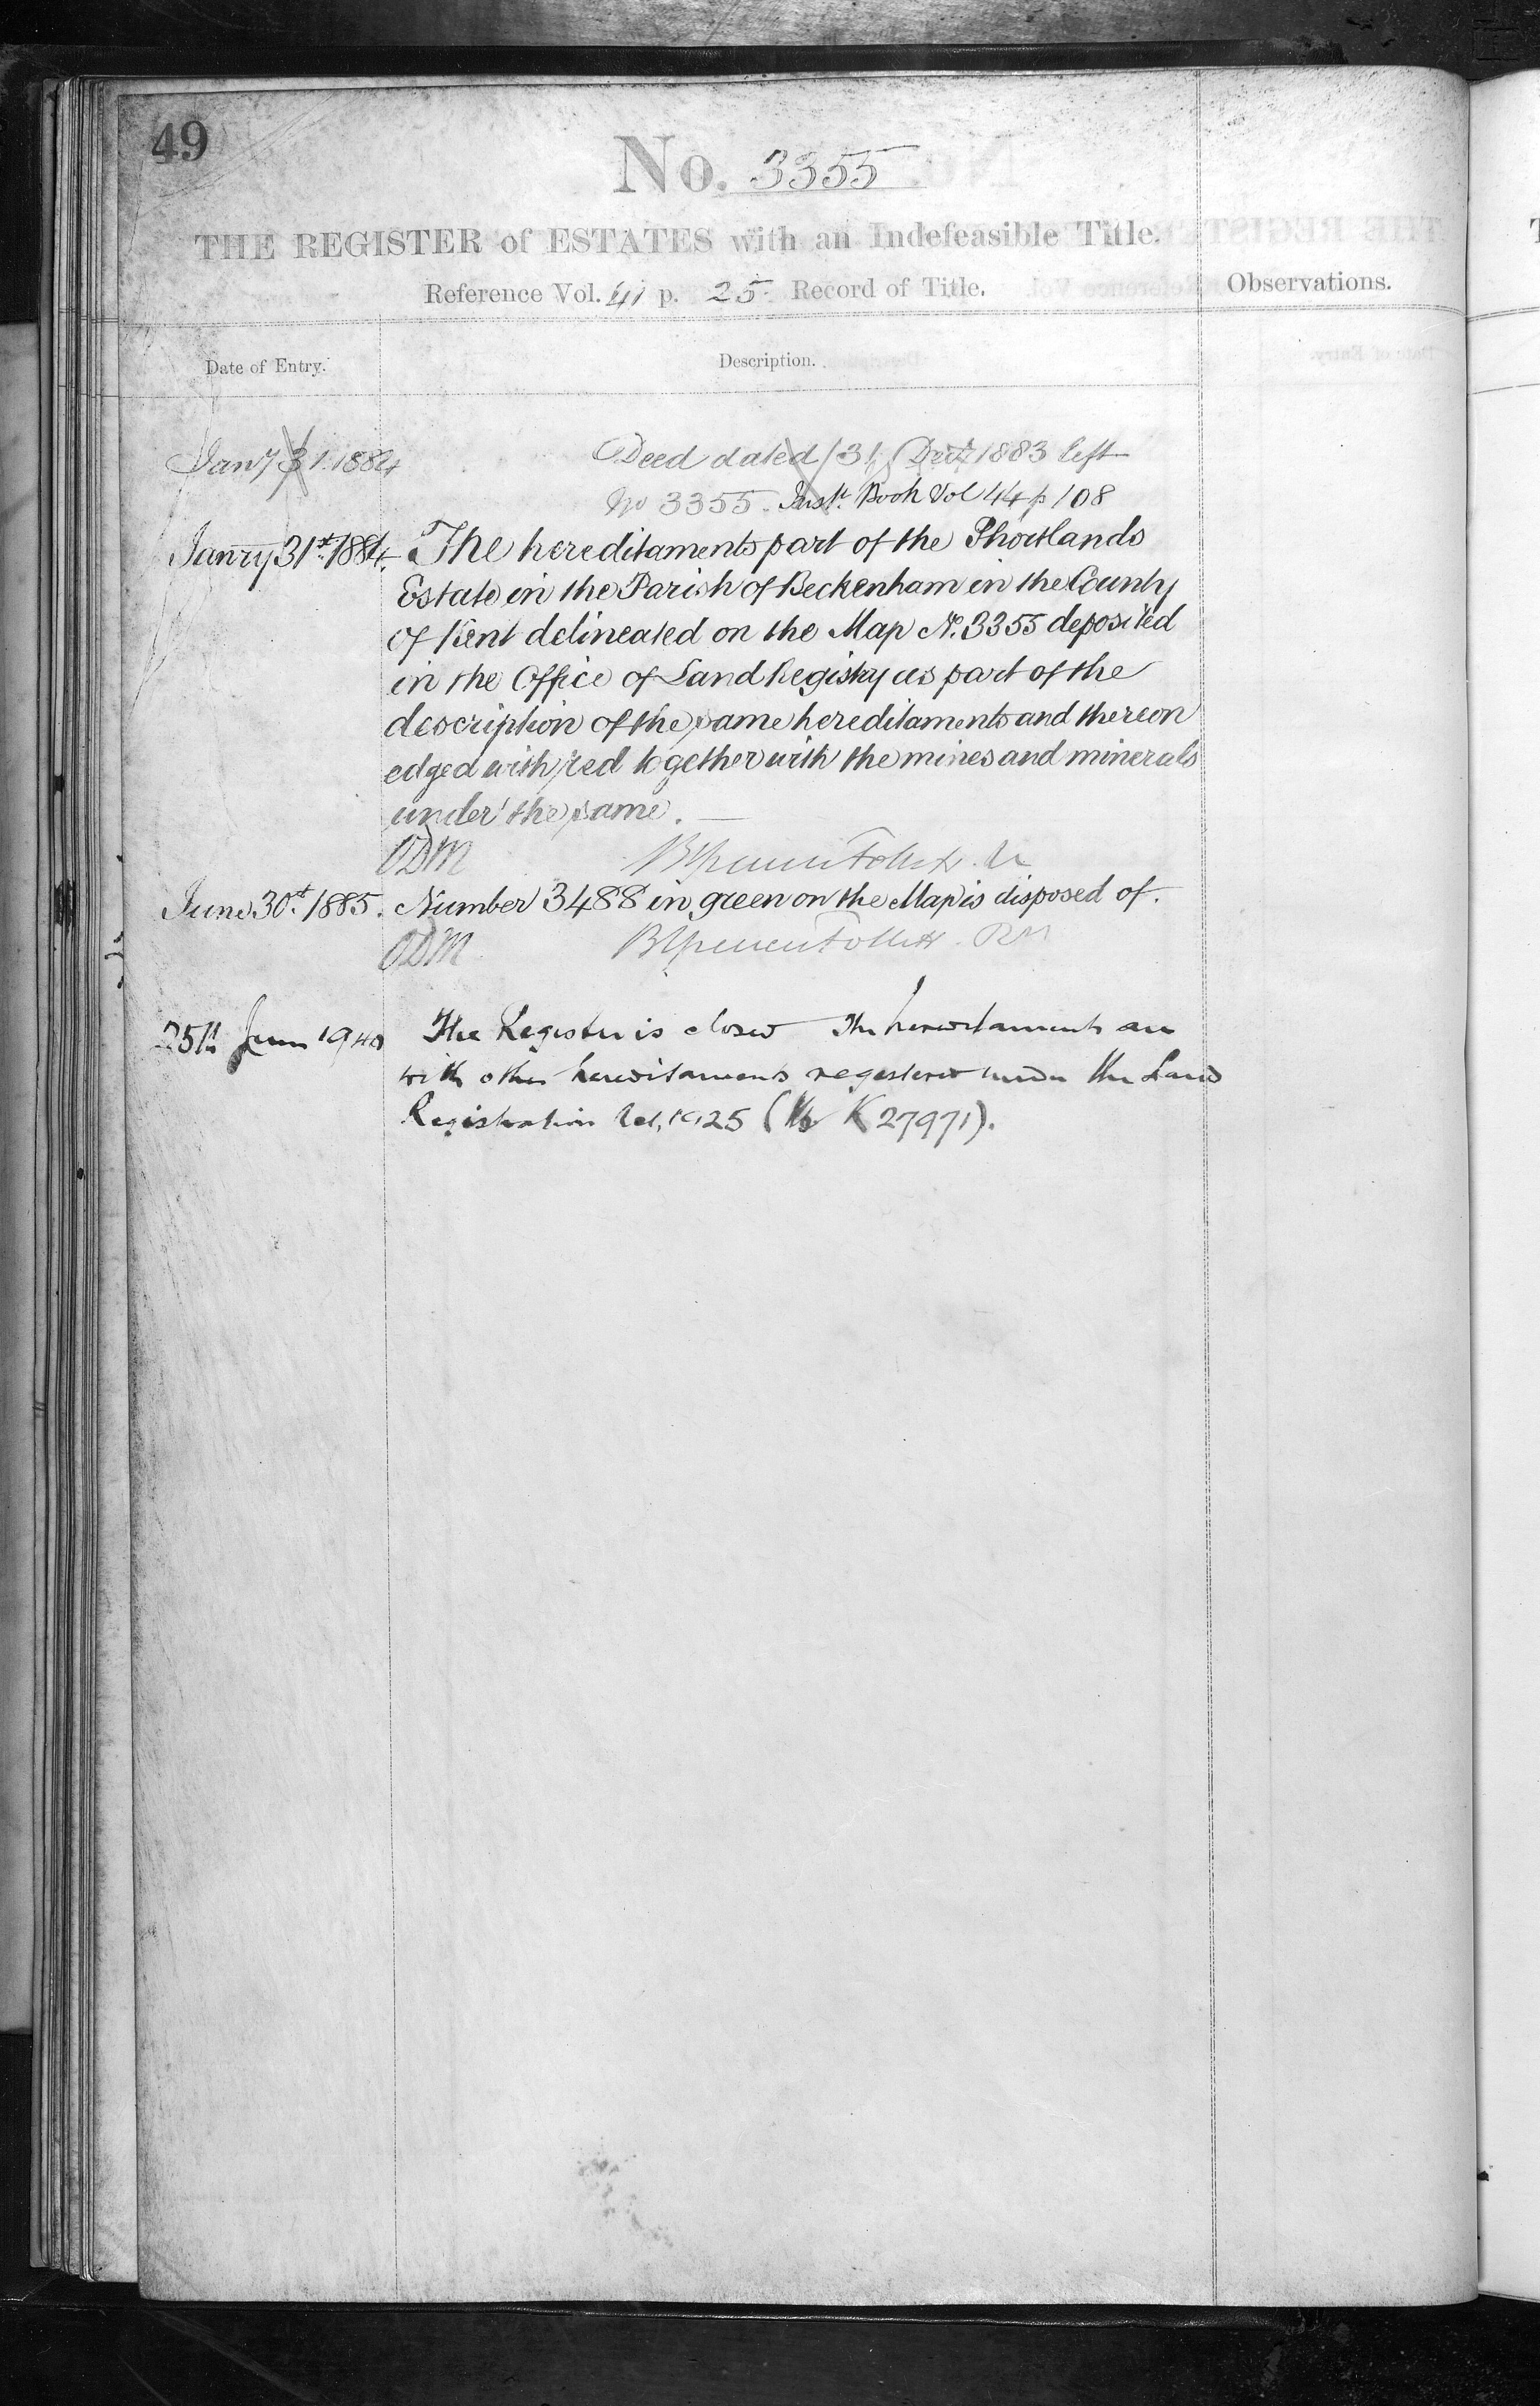 49
No. 3355
THE REGISTER of ESTATES with an Indefeasible Title.
Reference Vol. 41 p. 25 Record of Title.
Observations.
Date of Entry.
Description.
Jany 31 1884
Deed dated 31 Decr 1883 left
No 3355. Inst. Book Vol 44 p 108
Janry 31st 1884. The hereditaments part of the Shortlands
Estate in the Parish of Beckenham in the County
of Kent delineated on the Map No. 3355 deposited
in the Office of Land Registry as part of the
description of the same hereditaments and thereon
edged with red together with the mines and minerals
under the same.
ODM
June 30th 1885. Number 3488 in green on the Map is disposed of.
ODM
25th June 1940 The Register is closed The hereditaments are
with other hereditaments registered under the Land
Registration Act, 1925 (No K27971).